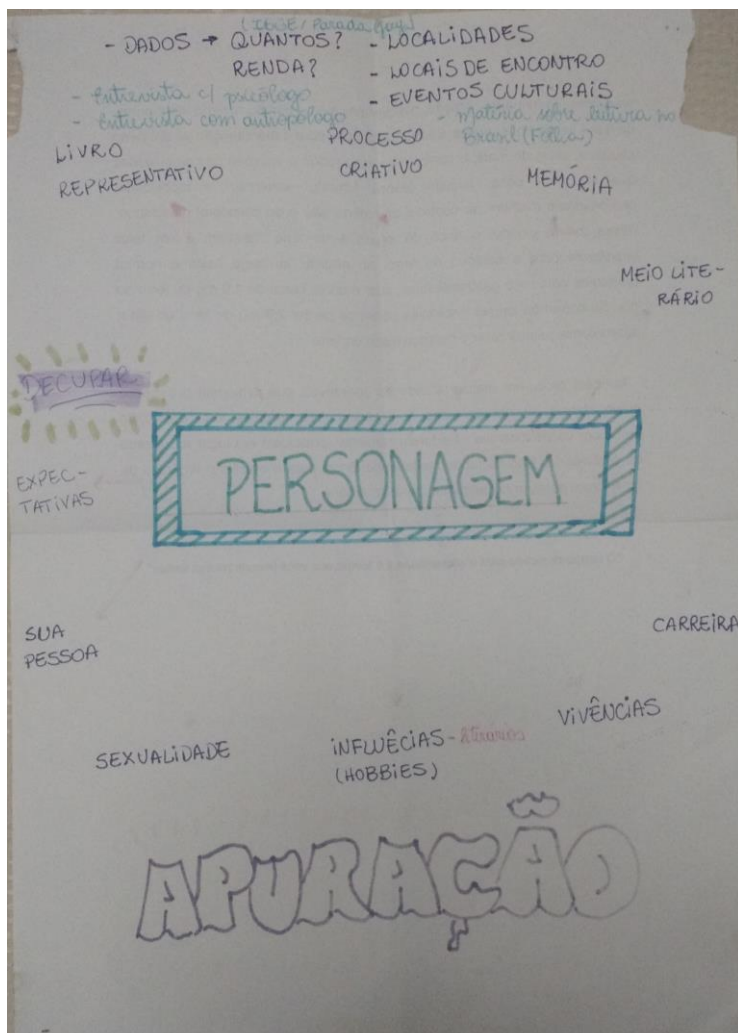 (IBGE/Parada Gay)
- DADOS → QUANTOS?
RENDA?
- LOCALIDADES
- LOCAIS DE ENCONTRO
- EVENTOS CULTURAIS
- Entrevista c/ psicólogo
- Entrevista com antropólogo
- Matéria sobre leitura no
Brasil (Folha)
LIVRO
REPRESENTATIVO
PROCESSO
CRIATIVO
MEMÓRIA
MEIO LITE-
RÁRIO
DECUPAR
PERSONAGEM
EXPEC-
TATIVAS
SUA
PESSOA
CARREIRA
SEXUALIDADE
INFLUÊCIAS - literárias
(HOBBIES)
VIVÊNCIAS
APURAÇÃO